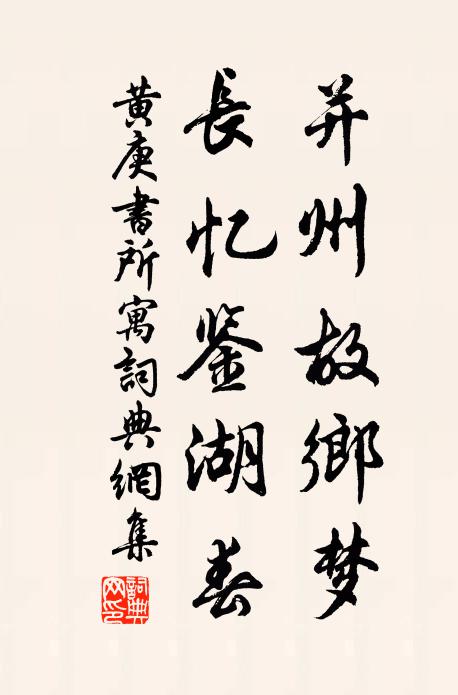 并州故鄉梦
長忆鉴湖春
黄庚書所寓詞典網集
詞典网印